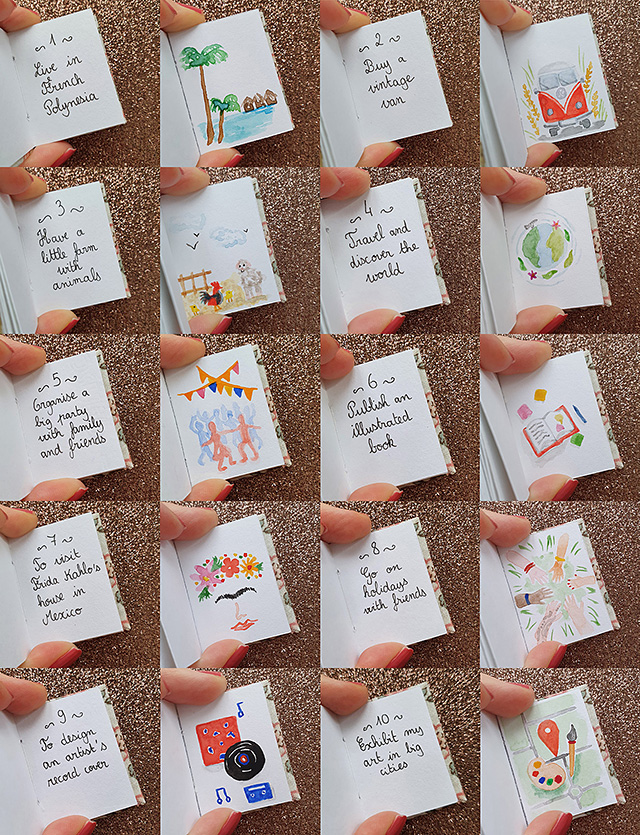 ~ 1 ~
Live in
French
Polynesia
~ 2 ~
Buy a
vintage
van
~ 3 ~
Have a
little farm
with
animals
~ 4 ~
Travel and
discover the
world
~ 5 ~
Organise a
big party
with family
and friends
~ 6 ~
Publish an
illustrated
book
~ 7 ~
To visit
Frida Kahlo's
house in
Mexico
~ 8 ~
Go on
holidays
with friends
~ 9 ~
To design
an artist's
record cover
~ 10 ~
Exhibit my
art in big
cities